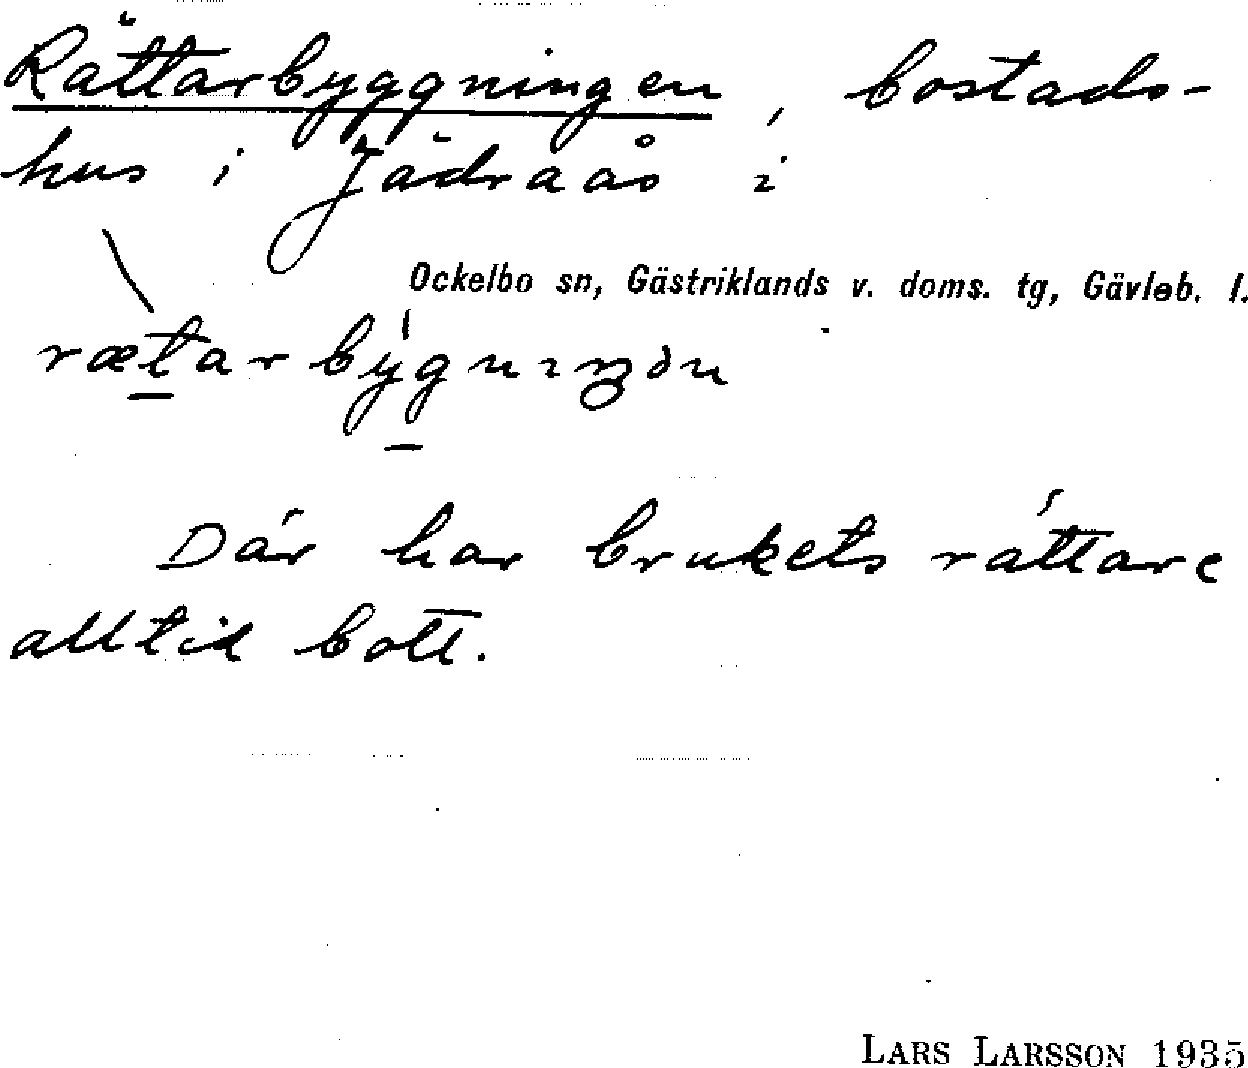 Rättarbyggningen, bostads-
hus i Jädraås i
Ockelbo sn, Gästriklands v. doms. tg, Gävleb. l.
rætarbygnıŋən
Där har brukets rättare
alltid bott.
LARS LARSSON 1935